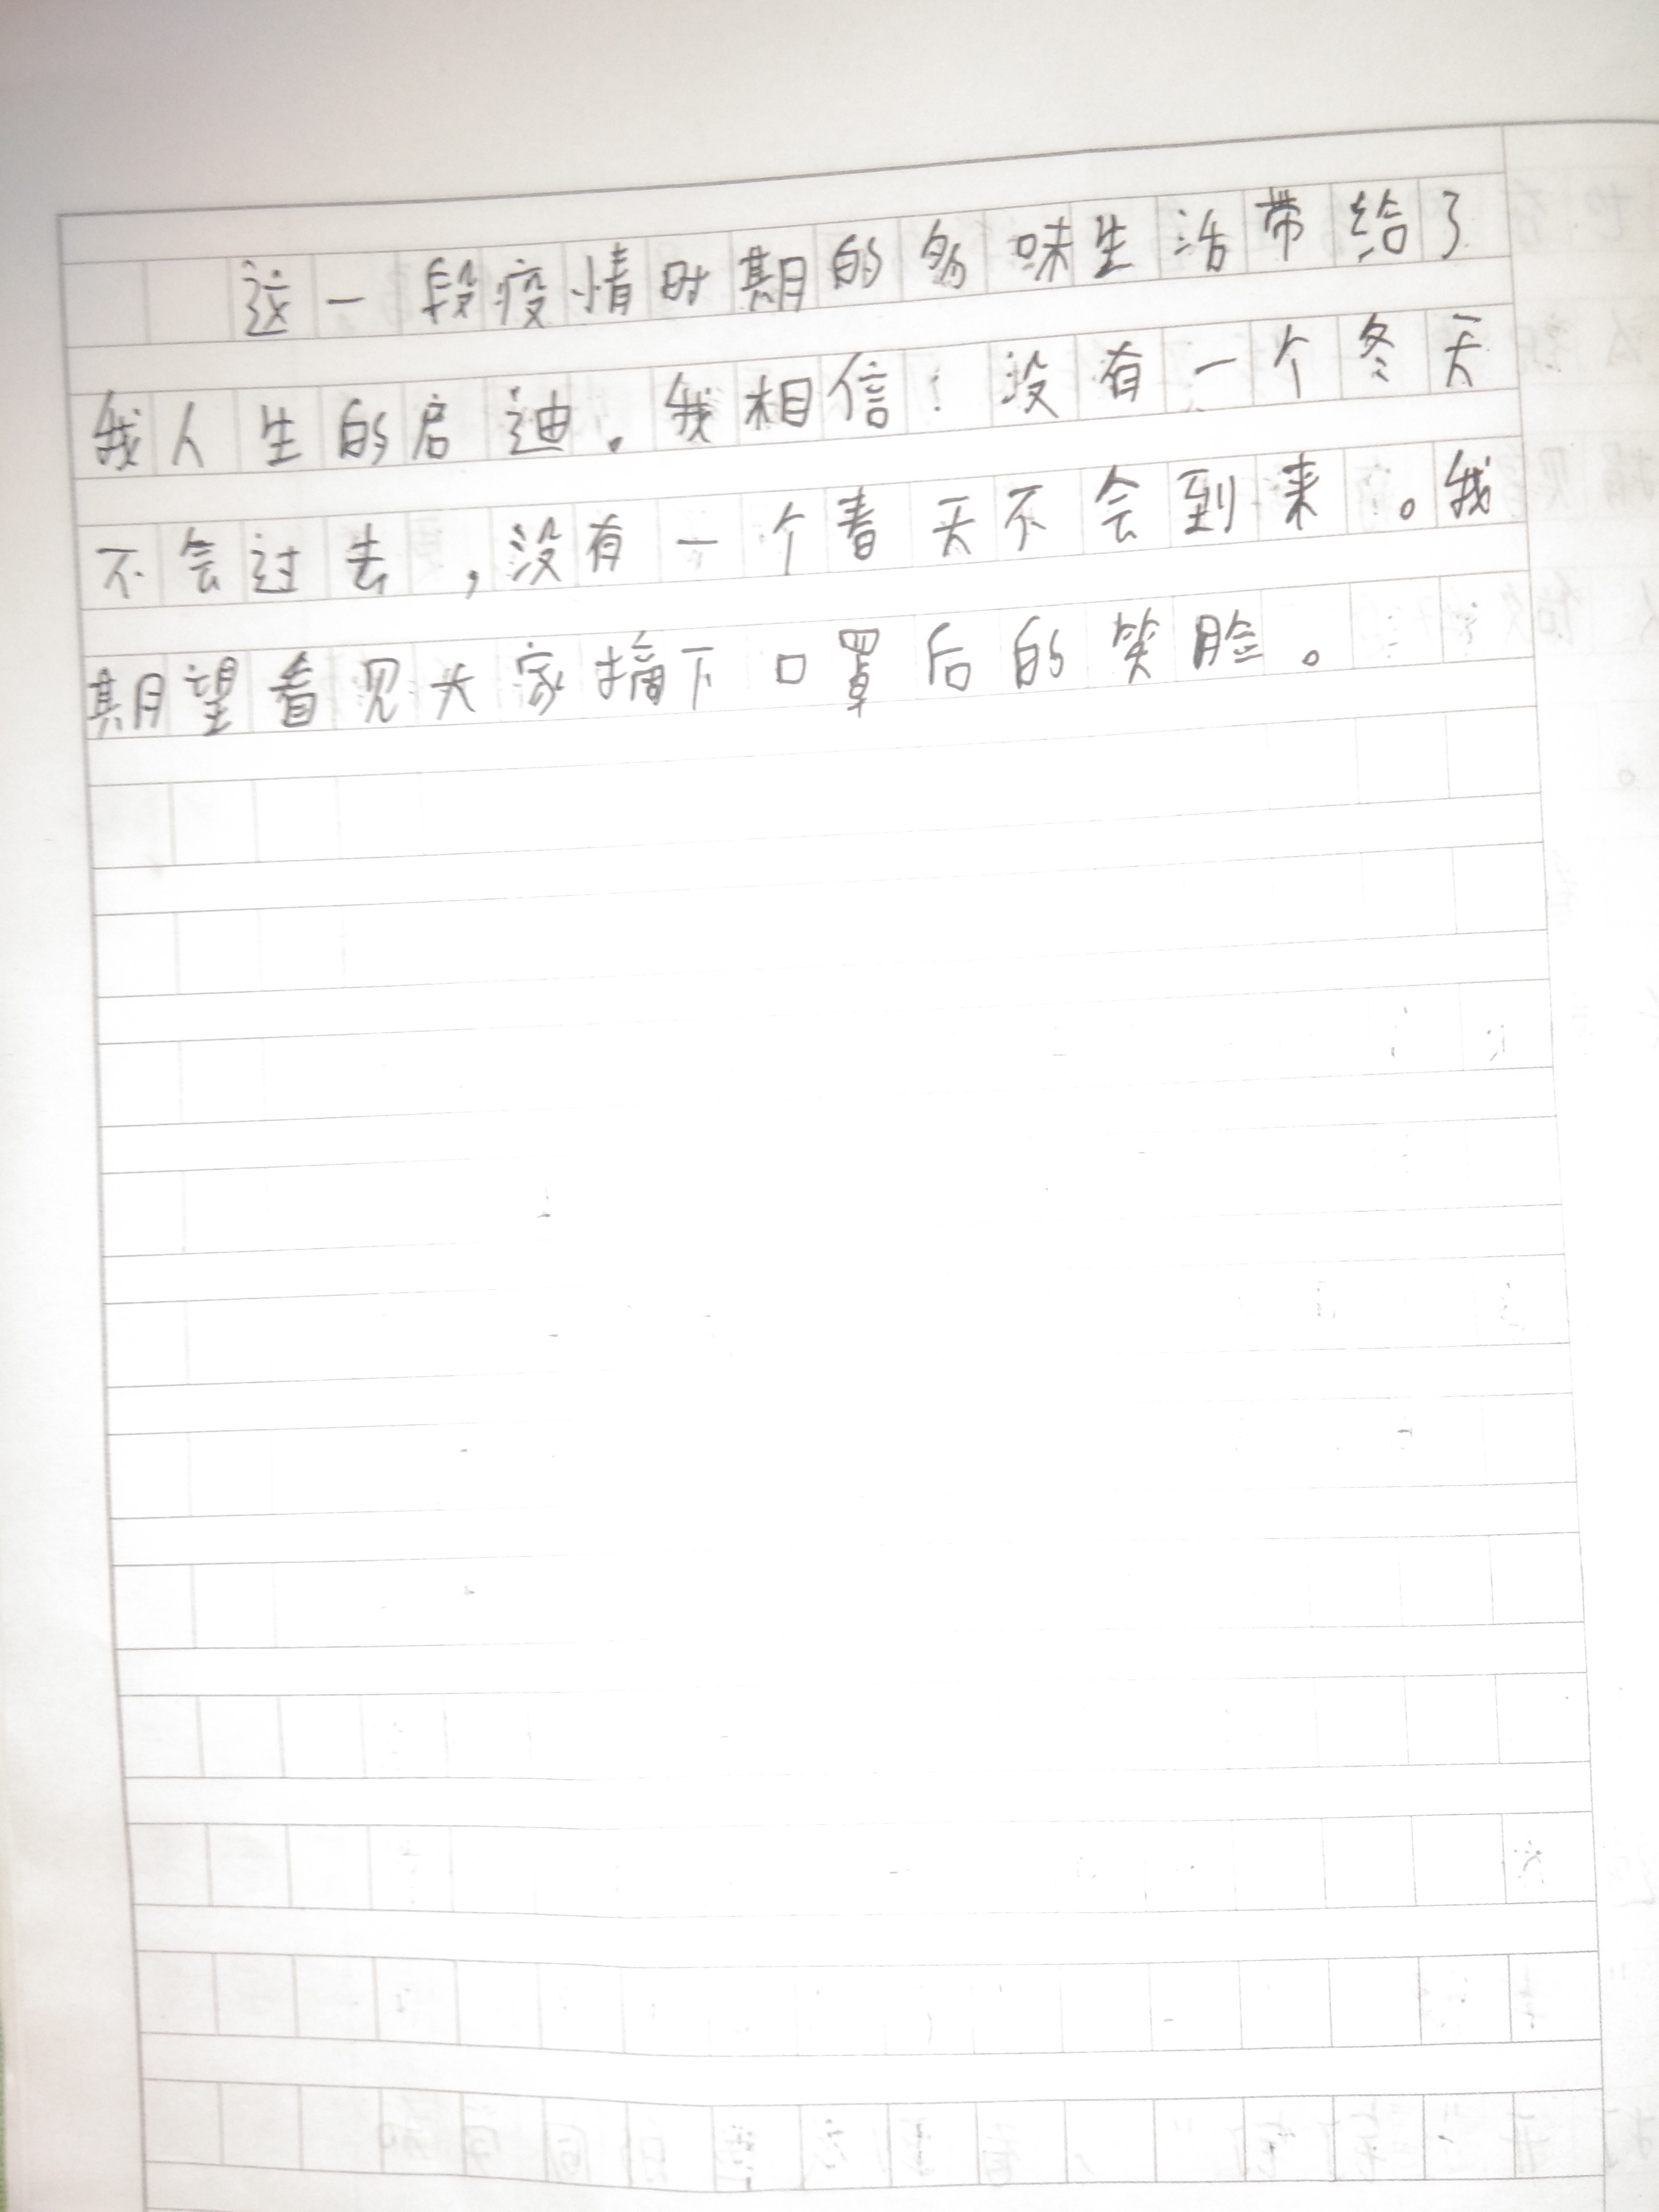 这一段疫情时期的多味生活带给了
我人生的启迪。我相信：没有一个冬天
不会过去，没有一个春天不会到来。我
期望看见大家摘下口罩后的笑脸。